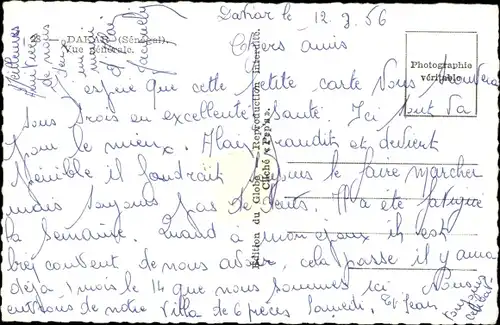 DAKAR (Sénégal).
Vue générale.
Dakar le 12.3.56
Chers amis
J'espère que cette petite carte vous trouvera
tous trois en excellente santé. Ici tout va
pour le mieux. Alain grandit et devient
pénible il faudrait le faire marcher
mais toujours pas de dents. Il a été fatigué
la semaine. Quand à mon époux il est
bien content de nous avoir, cela passe il y aura
déjà 1 mois le 14 que nous sommes ici. Nous
de notre villa de 6 pièces Samedi. Et Jean
toujours
Meilleures
amitiés
de nous
Jacqueline
Edition du Globe - Reproduction Interdite.
Cliché "Pep's".
Photographie
véritable